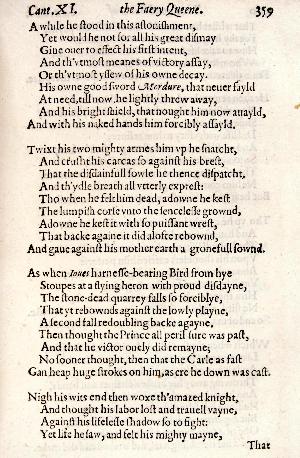 Cant. XI. the Faery Queene. 359
A while he stood in this astonishment,
Yet would he not for all his great dismay
Giue ouer to effect his first intent,
And th'vtmost meanes of victory assay,
Or th'vtmost yssew of his owne decay.
His owne good sword Mordure, that neuer fayld
At need, till now, he lightly threw away,
And his bright shield, that nought him now auayld,
And with his naked hands him forcibly assayld.
Twixt his two mighty armes him vp he snatcht,
And crusht his carcas so against his brest,
That the disdainfull sowle he thence dispatcht,
And th'ydle breath all vtterly exprest:
Tho when he felt him dead, adowne he kest
The lumpish corse vnto the sencelesse grownd,
Adowne he kest it with so puissant wrest,
That backe againe it did alofte rebownd,
And gaue against his mother earth a gronefull sownd.
As when Ioues harnesse-bearing Bird from hye
Stoupes at a flying heron with proud disdayne,
The stone-dead quarrey falls so forciblye,
That yt rebownds against the lowly playne,
A second fall redoubling backe agayne,
Then thought the Prince all peril sure was past,
And that he victor onely did remayne;
No sooner thought, then that the Carle as fast
Gan heap huge strokes on him, as ere he down was cast.
Nigh his wits end then woxe th'amazed knight,
And thought his labor lost and trauell vayne,
Against his lifelesse shadow so to fight:
Yet life he saw, and felt his mighty mayne,
That